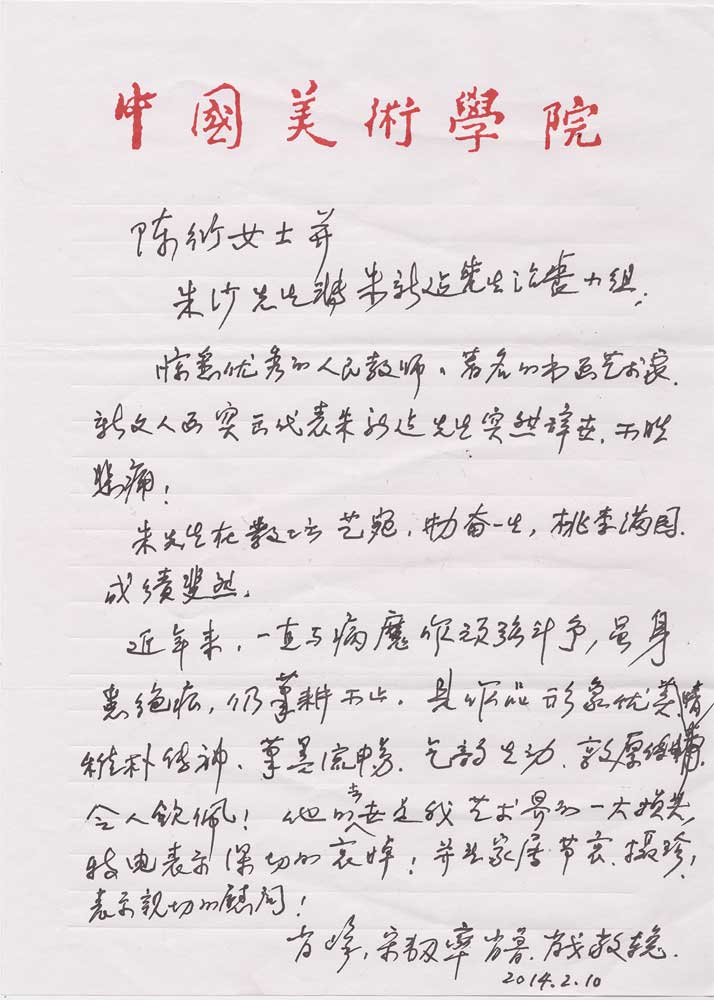 中國美術學院
陈衍女士并
朱沙先生转朱新建先生治丧小组:
惊悉优秀的人民教师、著名的书画艺术家、
新文人画实力代表朱新建先生突然辞世,不胜
悲痛!
朱先生在教坛艺苑,勤奋一生,桃李满园、
成绩斐然。
近年来,一直与病魔作顽强斗争,虽身
患绝症,仍笔耕不止。其作品形象优美
稚朴传神、笔墨流畅、气韵生动、敦厚
令人钦佩!他的去世是我艺术界的一大损失,
特电表示深切的哀悼!并望家属节哀、摄珍,
表示亲切的慰问!
肖峰、宋韧率肖鲁、肖戈敬挽.
2014.2.10